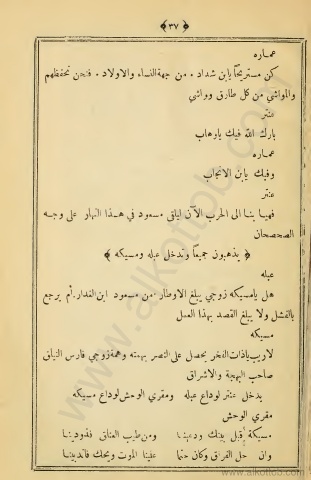 ﴿ ٣٧ ﴾
عماره
كن مستريحًا يابن شداد . من جهة النساء والاولاد . فنحن نحفظهم
والمواشي من كل طارق وواشي
عنتر
بارك الله فيك ياوهاب
عماره
وفيك يابن الانجاب
عنتر
فهيا بنا الى الحرب الآن ليلقى مسعود في هذا النهار على وجه
الصحصحان
﴿ يذهبون جميعًا وتدخل عبله ومسيكه ﴾
عبله
هل يامسيكه زوجي يبلغ الاوطار . من مسعود ابن الغدار . أم يرجع
بالفشل ولا يبلغ القصد بهذا العمل
مسيكه
لاريب ياذات الفخر يحصل على النصر بهمته وهمة زوجي فارس النياق
صاحب البهجة والاشراق
يدخل عنتر لوداع عبله ومقري الوحش لوداع مسيكه
مقري الوحش
مسيكة قبل بينك ودعينا ومن طيب العناق فزودينا
وان حل الفراق وكان حتما علينا الموت ويحك فاندبينا
www.alkottob.com
www.alkottob.com